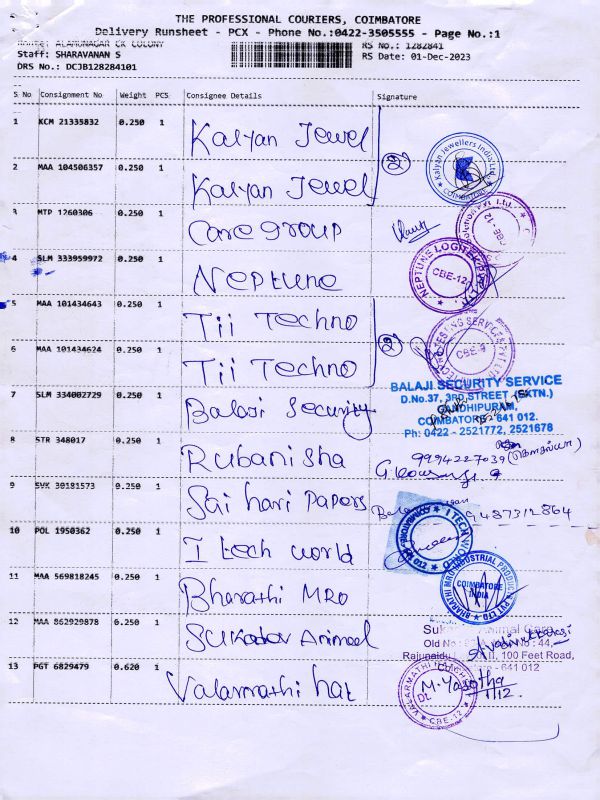 THE PROFESSIONAL COURIERS, COIMBATORE
Delivery Runsheet - PCX - Phone No.:0422-3505555 - Page No.:1
ALAMUNAGAR CK COLONY
RS No.: 1282841
Staff: SHARAVANAN S
RS Date: 01-Dec-2023
DRS No.: DCJB128284101
S No Consignment No Weight PCS Consignee Details Signature
1 KCM 21335832 0.250 1 Kalyan Jewel
2 MAA 104506357 0.250 1 Kalyan Jewel
2
Kalyan Jewellers India Ltd.
COIMBATORE
3 MTP 1260306 0.250 1 Care group
CBE-12
4 SLM 333959972 0.250 1 Neptune
NEPTUNE LOGITEK
CBE-12
5 MAA 101434643 0.250 1 Tii Techno
6 MAA 101434624 0.250 1 Tii Techno
2
TESTING SERVICE
CBE-9
7 SLM 334002729 0.250 1 Balaji Security
BALAJI SECURITY SERVICE
D.No.37, 3RD STREET (EXTN.)
GANDHIPURAM,
COIMBATORE - 641 012.
Ph: 0422 - 2521772, 2521678
8 STR 348017 0.250 1 Rubanisha
9994227039
9 SVK 30181573 0.250 1 Sai hari papers
9487312864
10 POL 1950362 0.250 1 I tech world
I TECH WORLD
11 MAA 569818245 0.250 1 Bharathi MRO
BHARATHI MRO INDUSTRIAL PRODUCTS PVT LTD
COIMBATORE
INDIA
12 MAA 862929878 0.250 1 Sukodav Animeel
Animal Care
Old No
No : 44,
II, 100 Feet Road,
- 641 012
13 PGT 6829479 0.620 1 Valarmathi hat
VALARMATHI
CBE-12
M. Yasotha
1/12.